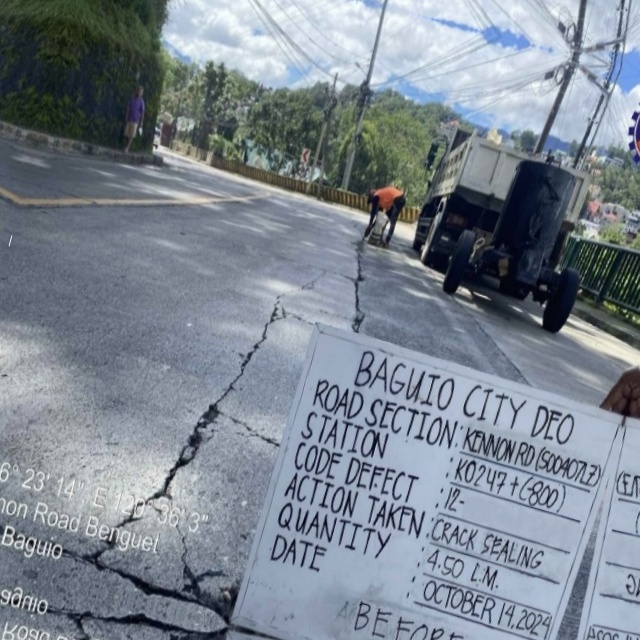 BAGUIO CITY DEO
ROAD SECTION : KENNON RD (S00407LZ)
STATION : K0247+(800)
CODE DEFECT : 12
ACTION TAKEN : CRACK SEALING
QUANTITY : 4.50 L.M.
DATE : OCTOBER 14, 2024
BEFORE
6° 23' 14" E 120° 36' 3"
non Road Benguet
Baguio